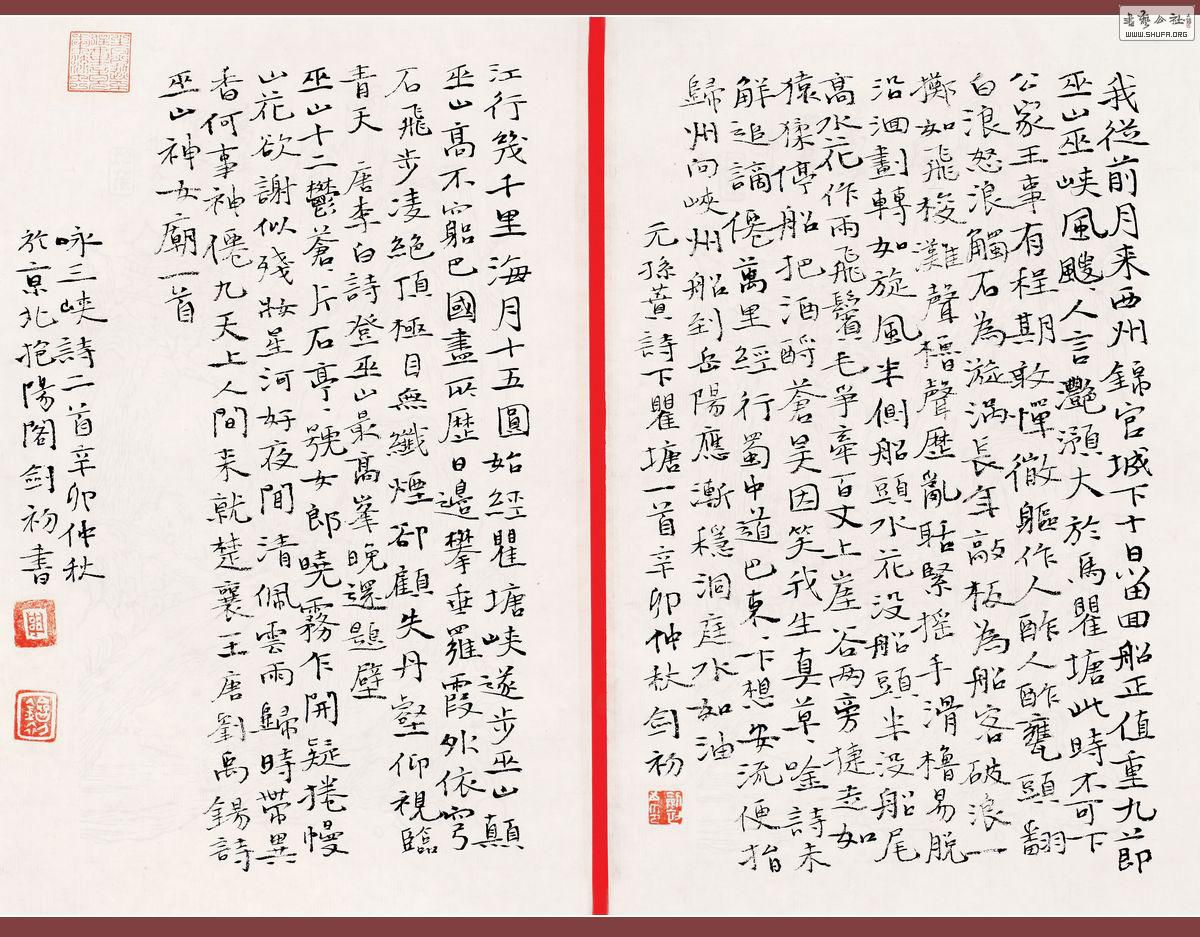 我從前月来西州錦官城下十日留回船正值重九節
巫山巫峽風颼颼人言灧澦大於馬瞿塘此時不可下
公家王事有程期敢憚微軀作人酢人酢甕頭翻
白浪怒浪觸石為漩渦長年敲板為船客破浪一
擲如飛梭灘聲櫓聲歷亂聒緊摇手滑櫓易脱
沿洄劃轉如旋風半側船頭水花没船頭半没船尾
高水花作雨飛鬢毛爭牽百丈上崖谷两旁捷走如
猿猱停船把酒酹蒼昊因笑我生真草草唫詩未
解追謫僊萬里經行蜀中道巴東下想安流便指
歸州向峽州船到岳陽應漸穩洞庭水如油
元孫蕡詩下瞿塘一首辛卯仲秋劍初
江行幾千里海月十五圓始經瞿塘峽遂步巫山顛
巫山高不窮巴國盡所歷日邊攀垂羅霞外依穹
石飛步凌絶頂極目無纖煙卻顧失丹壑仰視臨
青天 唐李白詩登巫山最高峯晚還題壁
巫山十二鬱蒼蒼片石亭亭號女郎曉霧乍開疑捲幔
山花欲謝似殘妝星河好夜聞清佩雲雨歸時帶異
香何事神僊九天上人間来就楚襄王唐劉禹錫詩
巫山神女廟一首
咏三峽詩二首辛卯仲秋
於京北抱陽閣劍初書
WWW.SHUFA.ORG